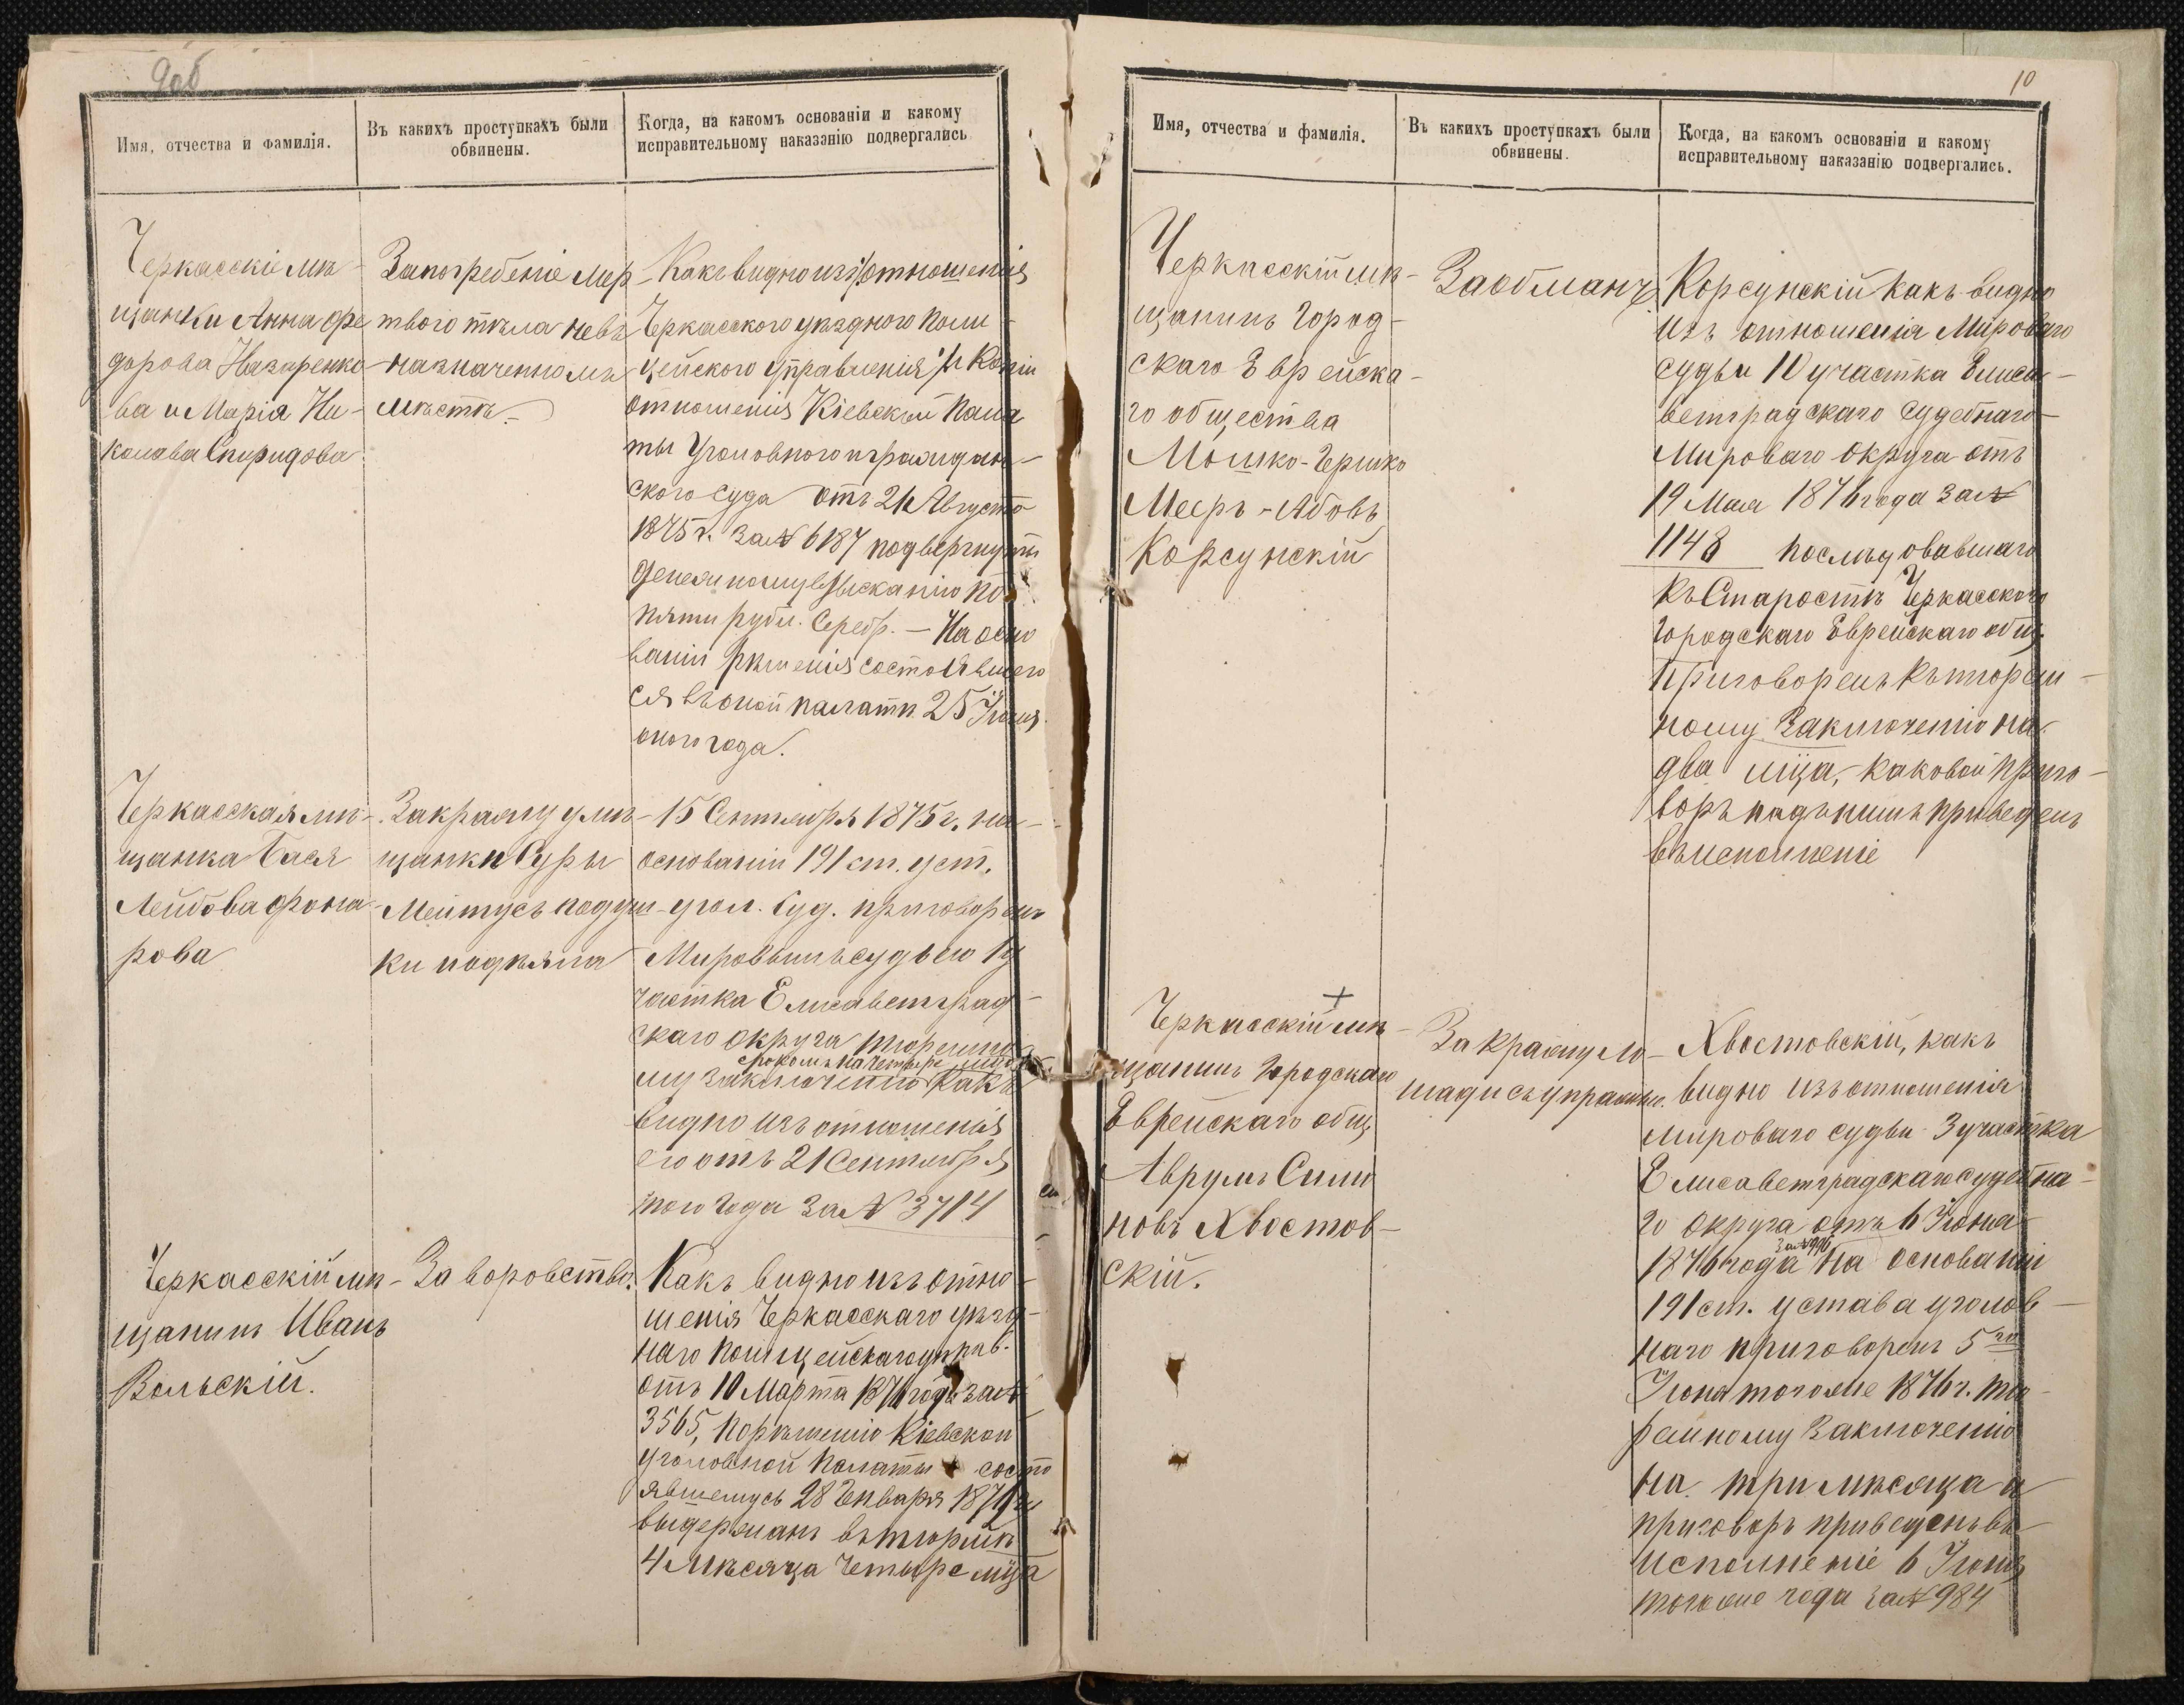 9об
Имя, отчества и фамилія.
Въ каких­ъ проступкахъ были
обвинены.
Когда, на какомъ основаніи и какому
исправительному наказанію подвергались
Черкасскіе мѣ-
щанки Анна Фе
дорова Назаренко-
ва и Марія Ни-
колаева Спиридова
За погребеніе мер-
твого тѣла не въ
назначенномъ
мѣстѣ.
Какъ видно изъ отношенія
Черкасского уѣздного поли-
цейского управленія и копіи
отношенія Кіевской пала
ты Уголовного и граждан-
ского суда отъ 21 Августа
1875 г. за № 6187 подвергнуты
денежному взысканію по
пяти рубл. серебр. — На осно
ваніи рѣшенія состоявшего
ся въ оной палатѣ 25 Іюня
оного года.
Черкасская мѣ-
щанка Бася
Лейбова Фона-
рова
За кражу у мѣ-
щанки Суры
Меитусъ подуш-
ки
15 Сентября 1875 г. на-
основаніи 191 ст. уст.
угол. суд. приговорена
Мировымъ судьею 1 у
частка Елисаветград-
скаго округа тюремно
срокомъ на четыре мѣсяца
му заключенію какъ
видно изъ отношенія
его отъ 21 Сентября
того года за № 3714
Черкасскій мѣ-
щанинъ Иванъ
Вольскій.
За воровство.
Какъ видно изъ отно-
шенія Черкасскаго уѣзд-
наго полицейскаго управ.
отъ 10 Марта 1876 года за №
3565, по рѣшенію Кіевской
уголовной палаты состо
явшемусь 28 Генваря 1871 г.
выдержанъ въ тюрьмѣ
4 мѣсяца четыре мца
10
Имя, отчества и фамилія.
Въ какихъ проступкахъ были
обвинены.
Когда, на какомъ основаніи и какому
исправительному наказанію подвергались.
Черкасскій мѣ-
щанинъ город-
скаго Еврейска-
го общества
Мошко-Гершко
Мееръ-Абовъ
Корсунскій
За обманъ
Корсунскій какъ видно
изъ отношенія Мироваго
судьи 10 участка Елиса-
ветградскаго судебнаго
Мироваго округа отъ
19 Мая 1876 года за №
1148 послѣдовавшаго
къ Старостѣ Черкасского
городскаго Еврейскаго общ.
приговоренъ къ тюрем-
ному заключенію на
два мца, каковой приго-
воръ надъ нимъ приведенъ
въ исполненіе
+
Черкасскій мѣ-
щанинъ Городскаго
Еврейскаго общ.
Аврумъ Сими
новъ Хвостов-
скій.
За кражу ло-
шади съ упряжью.
Хвостовскій, какъ
видно изъ отношенія
мироваго судьи 3 участка
Елисаветградскаго судебна-
го округа отъ 6 Іюня
за № 996
1876 года на основаніи
191 ст. устава уголов-
наго приговоренъ 5го
Іюня того же 1876 г. тю-
ремному заключенію
на три мѣсяца и
приговоръ приведенъ въ
исполненіе 6 Іюня
того же года за № 984